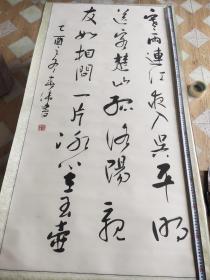 寒雨連江夜入吳平明
送客楚山孤洛陽親
友如相問一片冰心在玉壺
乙酉之冬 書